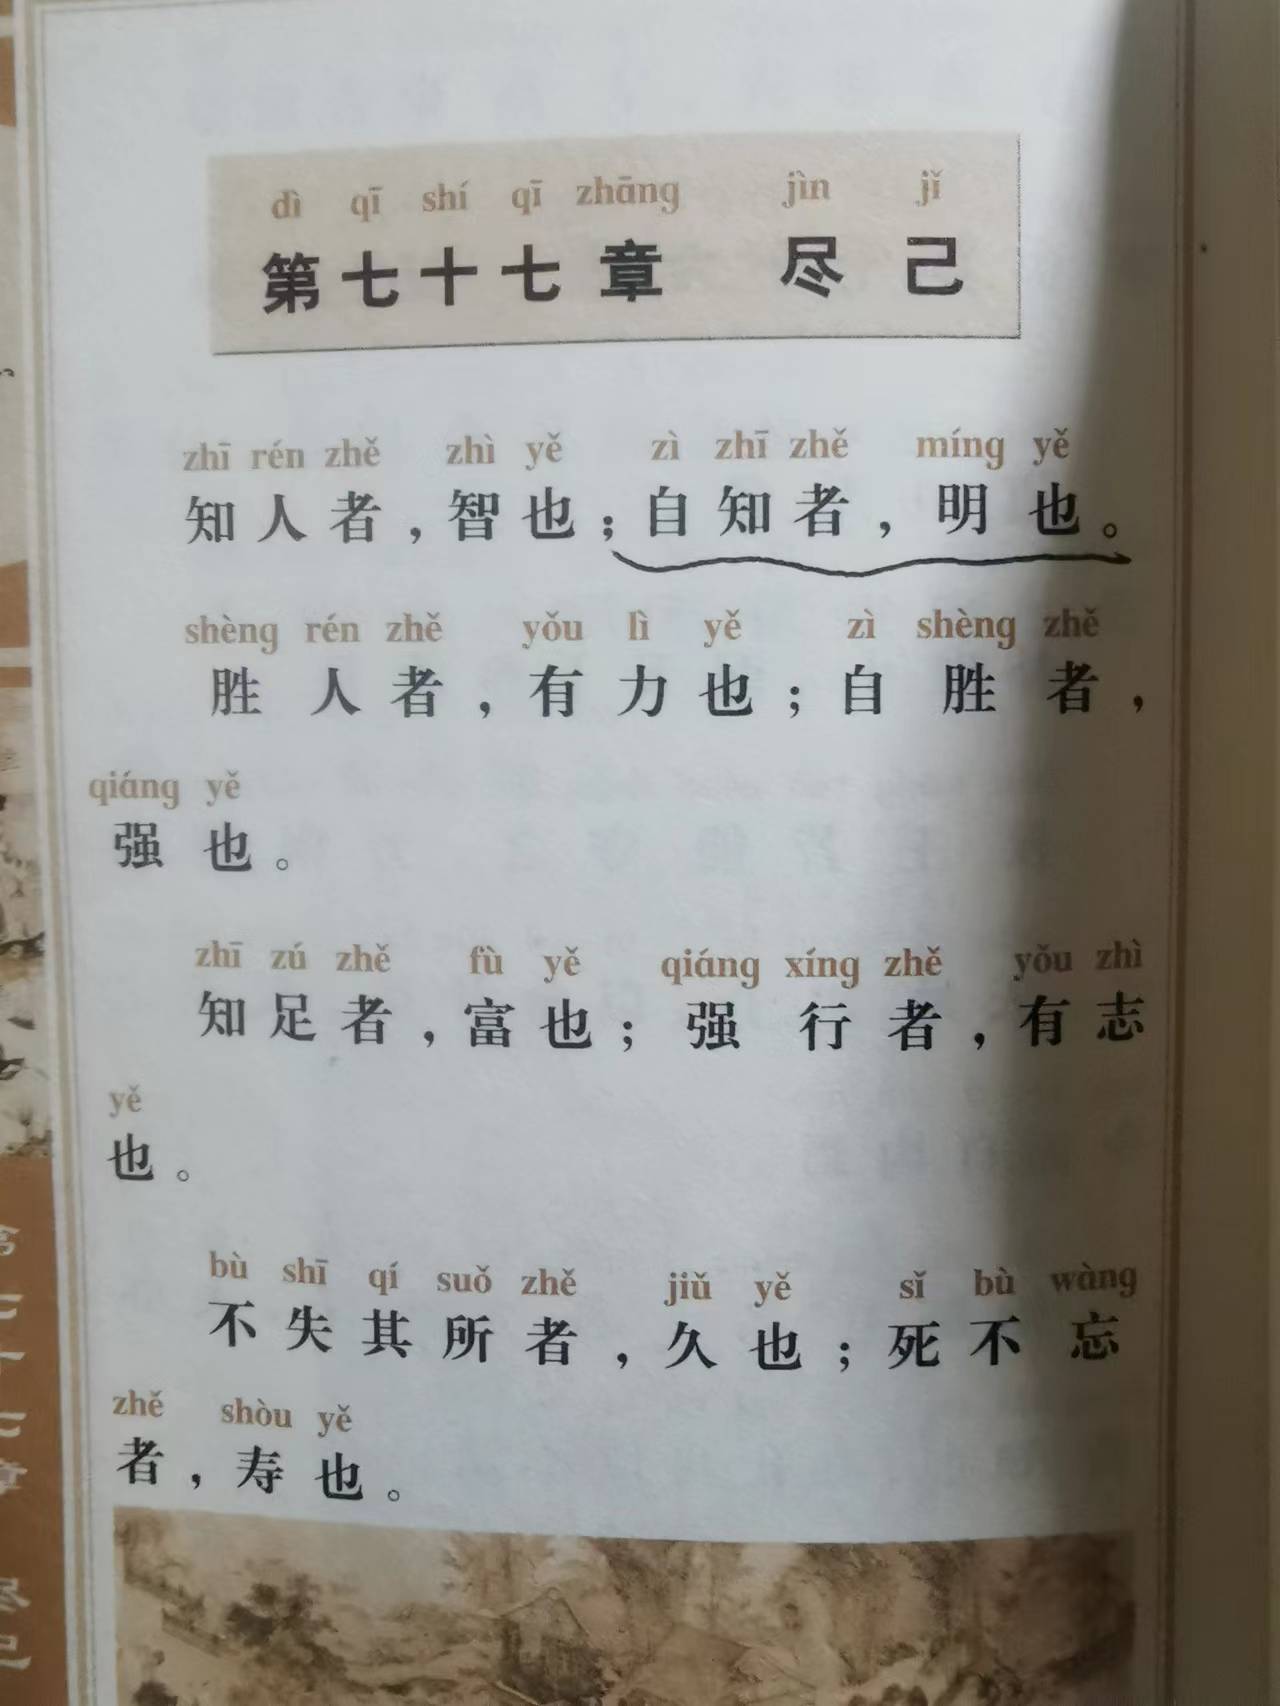 dì qī shí qī zhāng jìn jǐ
第七十七章 尽己
zhī rén zhě zhì yě zì zhī zhě míng yě
知人者，智也；自知者，明也。
shèng rén zhě yǒu lì yě zì shèng zhě
胜人者，有力也；自胜者，
qiáng yě
强也。
zhī zú zhě fù yě qiáng xíng zhě yǒu zhì
知足者，富也；强行者，有志
yě
也。
bù shī qí suǒ zhě jiǔ yě sǐ bù wàng
不失其所者，久也；死不忘
zhě shòu yě
者，寿也。
第七十七章 尽己